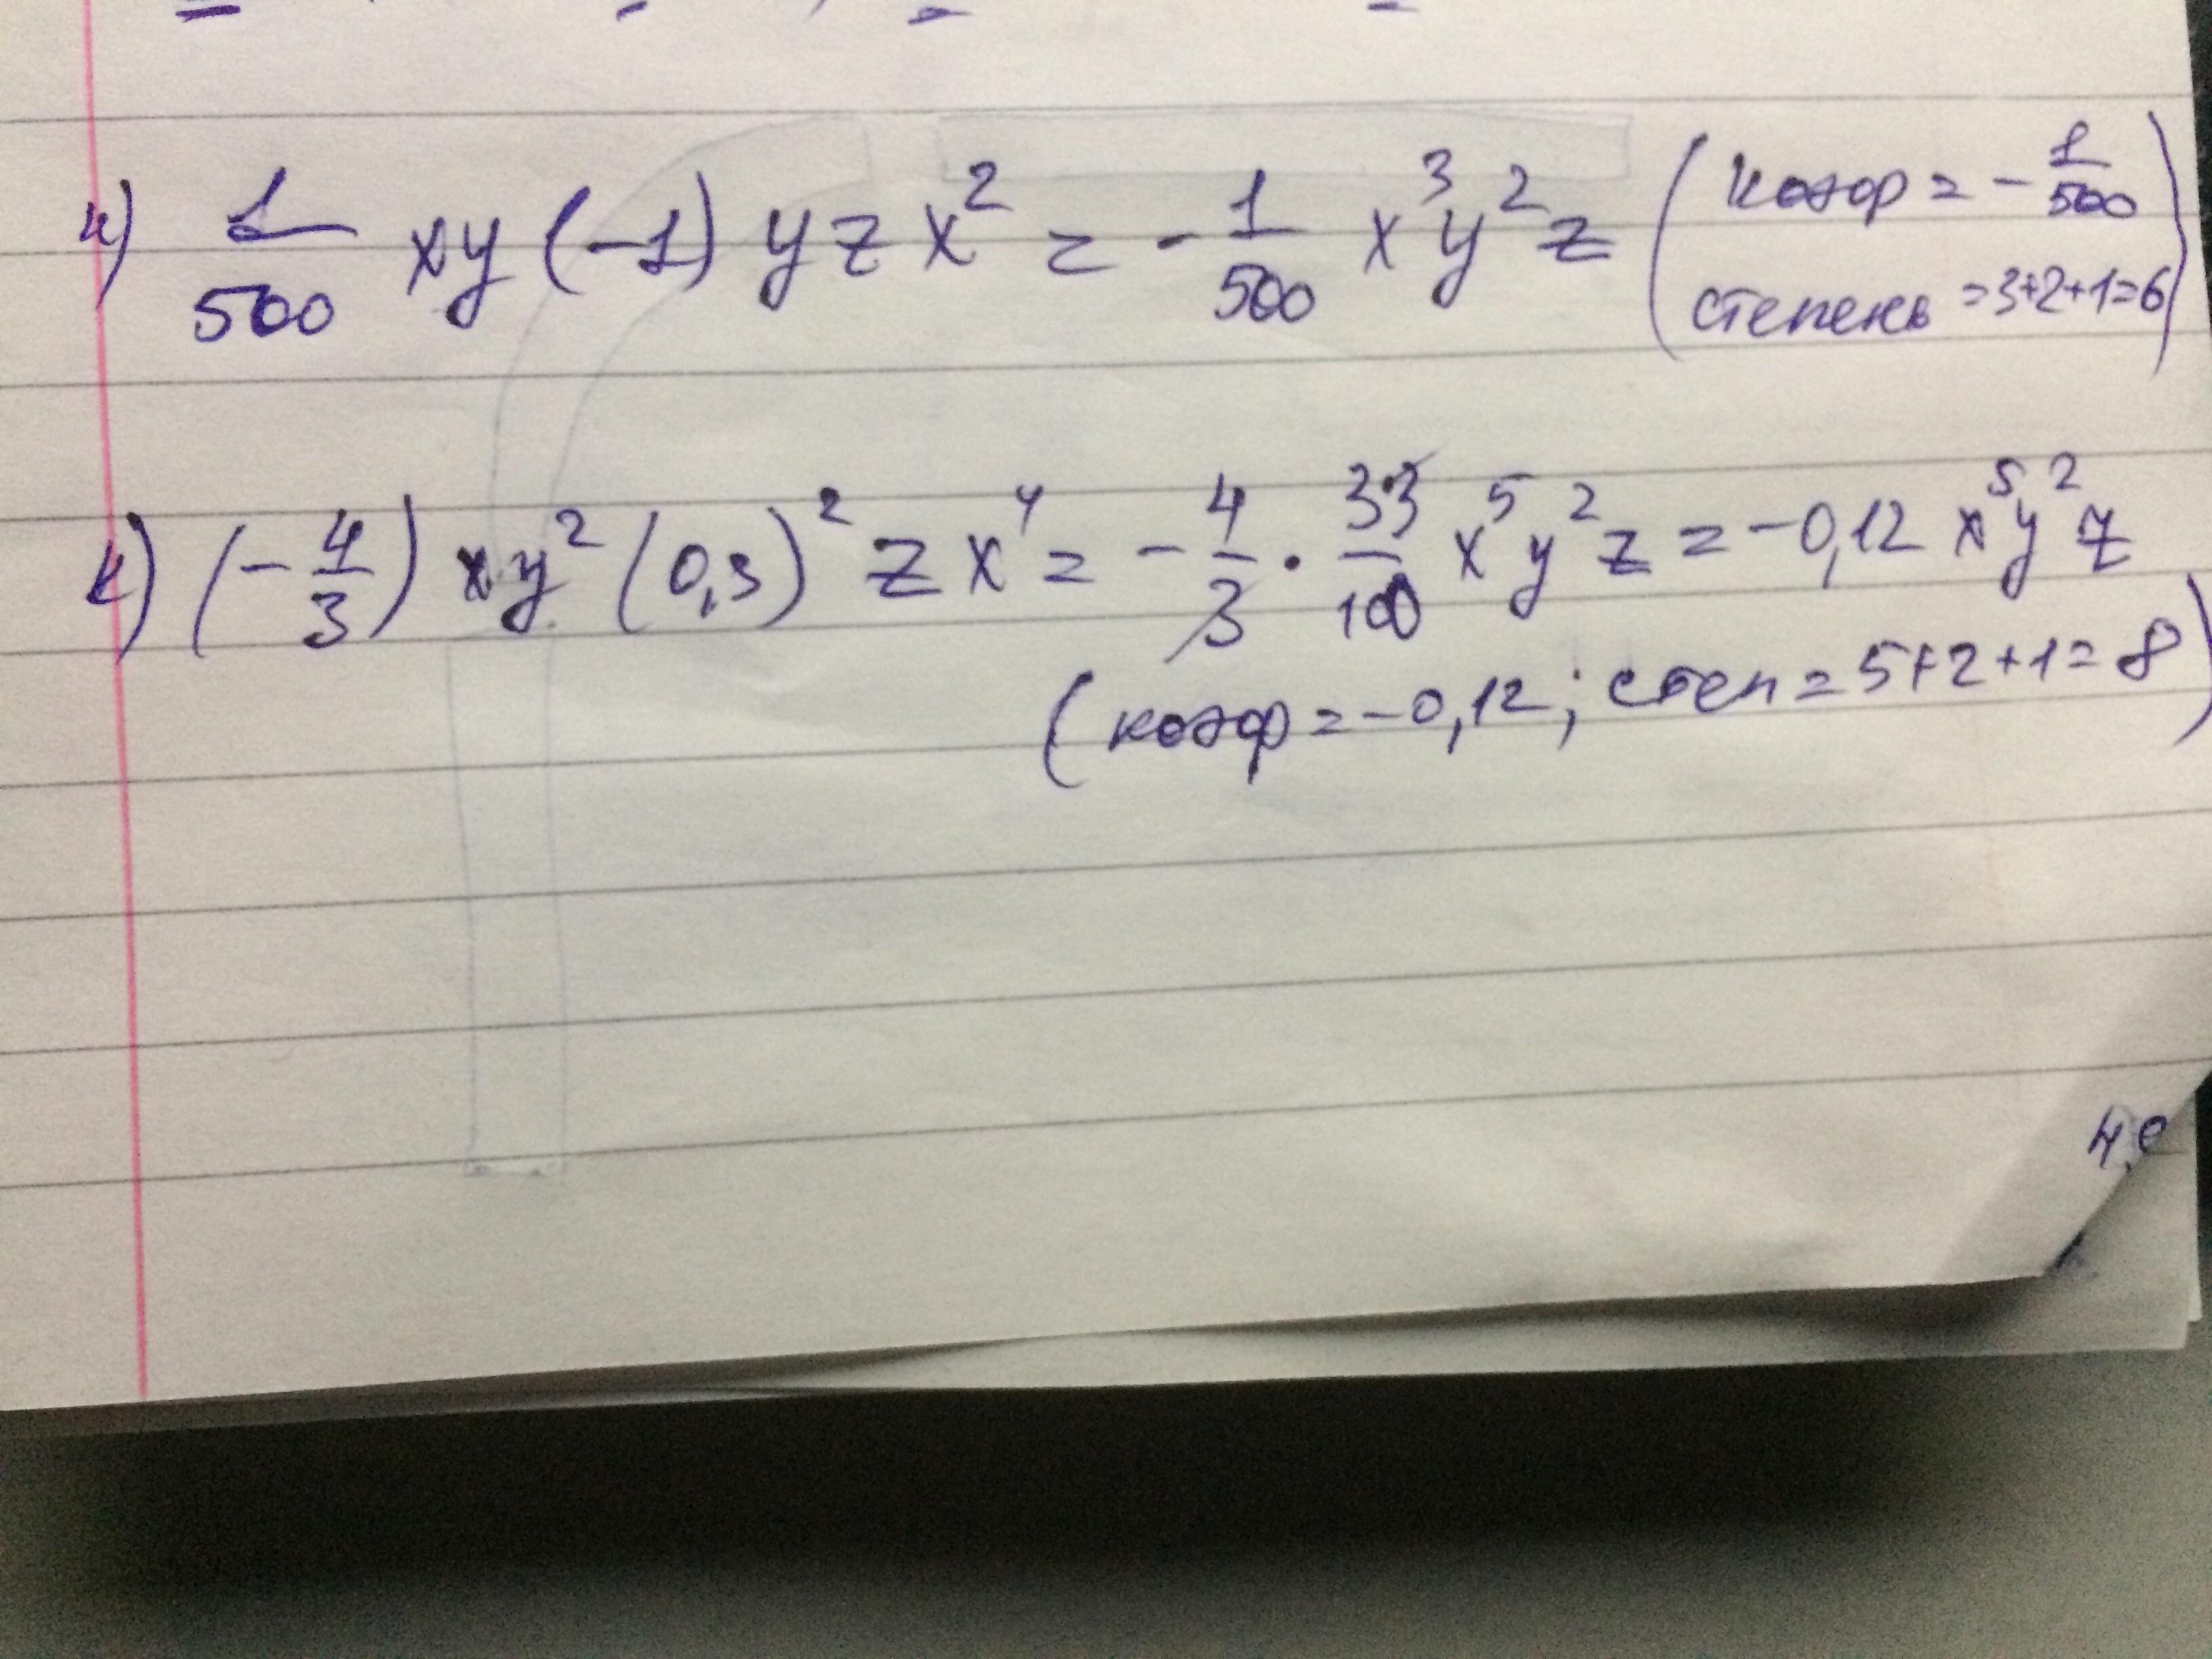 и) 1/500 xy (-1) yzx² = - 1/500 x³y²z (коэф = - 1/500
степень = 3+2+1=6)
к) (- 4/3) xy² (0,3)² zx⁴ = - 4/3 · 3·3/100 x⁵y²z = -0,12 x⁵y²z
(коэф = -0,12; степ = 5+2+1=8)